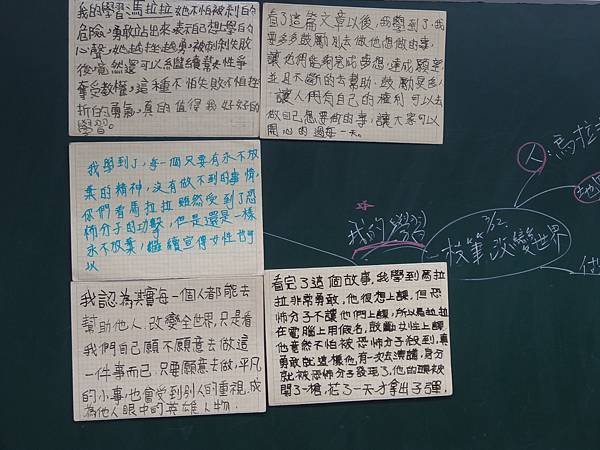 我的學習馬拉拉她不怕被刺的
危險,勇敢站出來表示自己想上學的
心聲,她越挫越勇,被
後,竟然還可以繼續幫女性爭
奪受教權,這種不怕失敗不怕挫
折的勇氣,真的值得我好好的
學習。
看了這篇文章以後,我學到了,我
要多多鼓勵別去做他想做的事,
讓他們能夠完成夢想、達成願望
並且不斷的去幫助、鼓勵更多人
,讓人們有自己的權利可以去
做自己想要做的事;讓大家可以
開心的過每一天。
我學到了,每一個只要有永不放
棄的精神,沒有做不到的事情,
你們看馬拉拉雖然受到了恐
怖分子的功擊,但是還是一樣
永不放棄,繼續宣傳女性也可
以
我認為其實每一個人都能去
幫助他人、改變全世界,只是看
我們自己願不願意去做這
一件事而已,只要願意去做,平凡
的小事,也會受到別人的重視,成
為他人眼中的英雄人物.
看完了這個故事,我學到馬拉
拉非常勇敢,他很想上課,但恐
怖分子不讓他們上課,所以馬拉拉
在電腦上用假名,鼓勵女性上課,
他竟然不怕被恐怖分子殺到,真
勇敢就這樣他有一次去演講,身分
就被恐怖分子發現了,他的頭被
開了一槍,花了一天才拿出子彈,
我的學習
3/2
一枝筆改變世界
人:馬拉
地